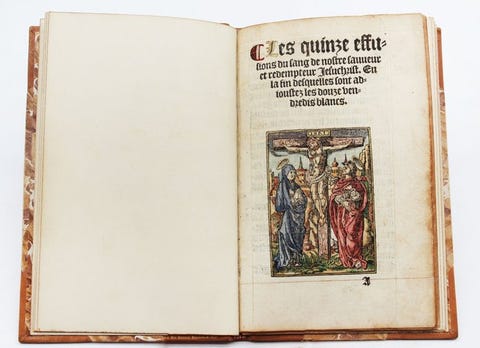 Les quinze effu-
sions du sang de nostre sauueur
et redempteur Jesuchrist. En
la fin desquelles sont ad-
ioustez les douze ven-
dredis blancs.
INRI
A